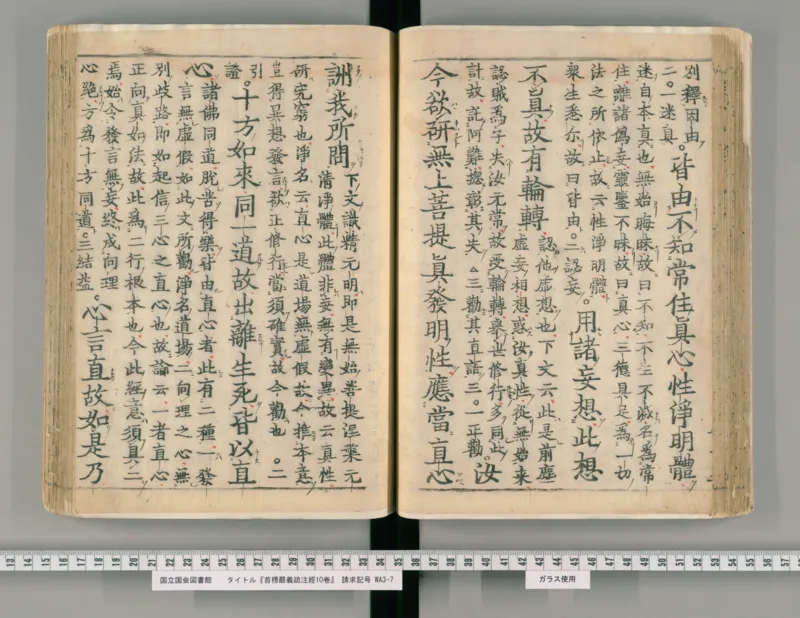 別釋因由
二。一迷真。皆由不知常住真心性淨明體
迷自本真也無始晦昧故曰不知不生不滅名為常
住離諸偽妄靈鑒不昧故曰真心三德具足為一切
法之所依止故云性淨明體
衆生悉尔故曰皆由。二認妄。用諸妄想此想
不真故有輪轉
認他虛想也下文云此是前塵
虛妄相想惑汝真性從無始来
認賊為子失汝元常故受輪轉舉世修行多同此
計故託阿難捴彰其失 △三勸其直詶三。一正勸。汝
今欲研無上菩提真發明性應當直心
詶我所問
下文識精元明即是無始菩提涅槃元
清淨體此體非妄無有變異故云真性
研究窮也淨名云直心是道場無虛假故今推本意
豈得異想發言欲正修行當須確實故今勸也 。二
引
證。十方如來同一道故出離生死皆以直
心
諸佛同道脫苦得樂皆由直心者此有二種一發
言無虛假如此文所勸淨名道場二向理之心無
別岐路即如起信三心之直心也故論云一者直心
正向真如法故此為二行根本也今此經意須具二
焉始令發言無妄終成向理
心絶方為十方同道。三結益。心言直故如是乃
国立国会図書館 タイトル『首楞嚴義疏注經10巻』 請求記号 WA3-7
ガラス使用